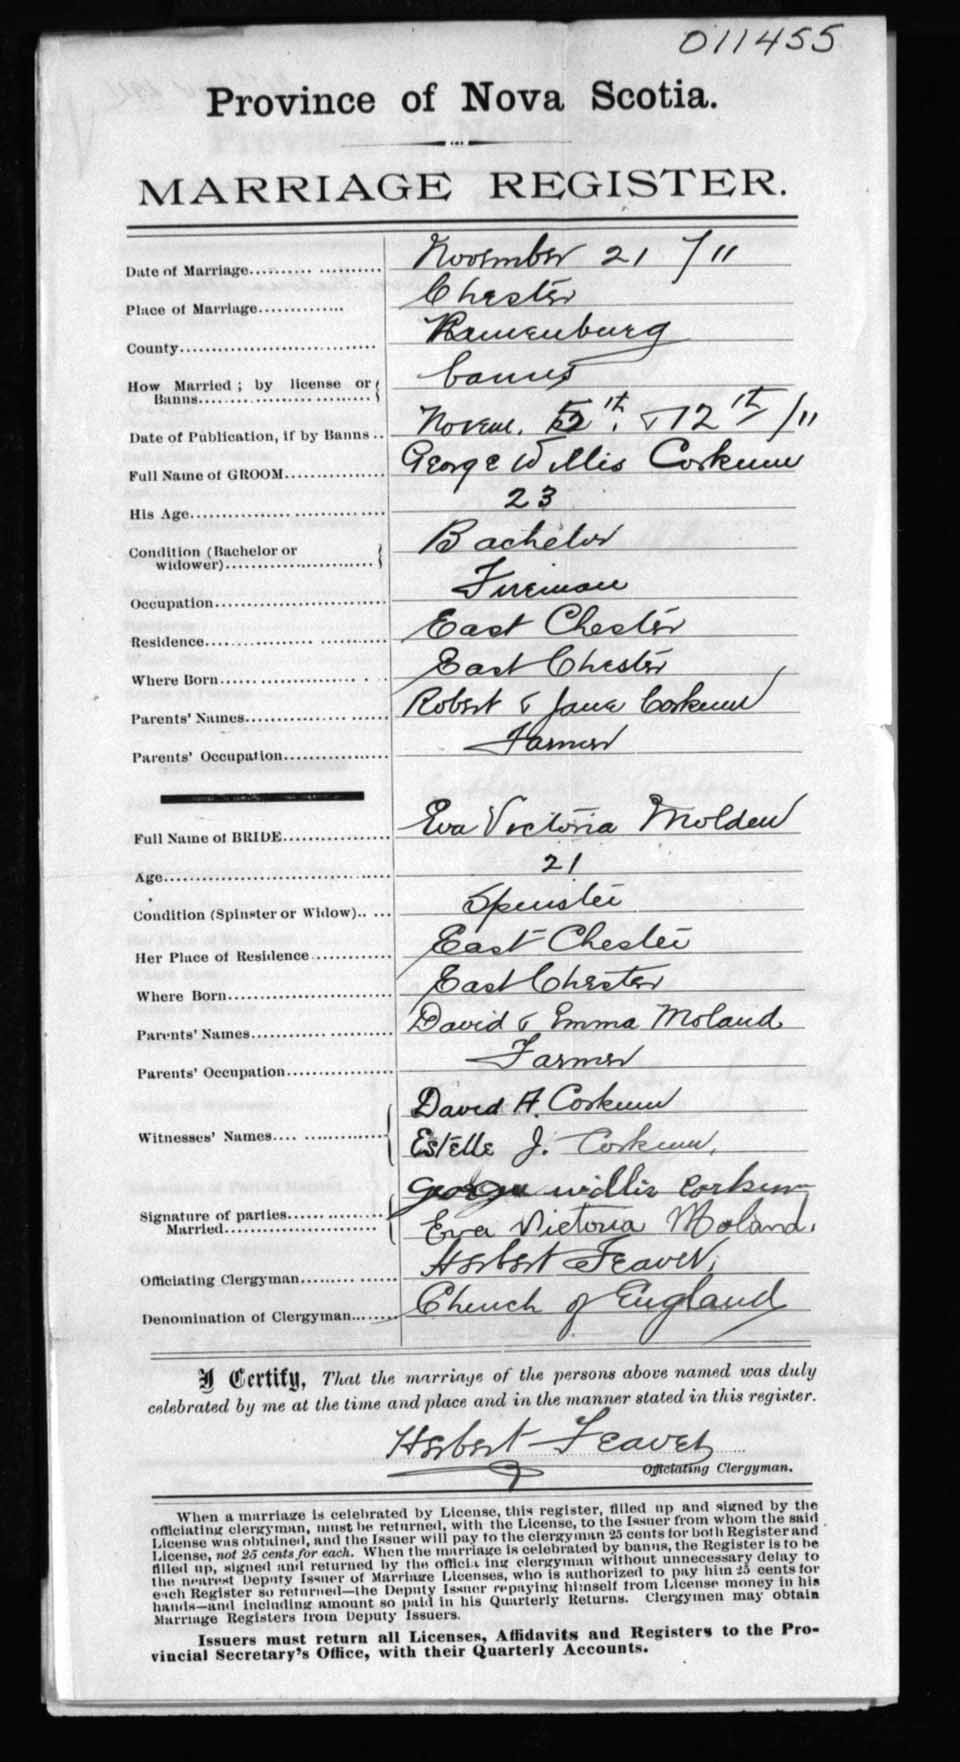 011455
Province of Nova Scotia.
MARRIAGE REGISTER.
Date of Marriage November 21 / 11
Place of Marriage Chester
County Lunenburg
How Married; by license or Banns banns
Date of Publication, if by Banns Novem. 5th. & 12th / 11
Full Name of GROOM George Willis Corkum
His Age 23
Condition (Bachelor or widower) Bachelor
Occupation Fireman
Residence East Chester
Where Born East Chester
Parents' Names Robert & Jane Corkum
Parents' Occupation Farmer
Full Name of BRIDE Eva Victoria Molden
Age 21
Condition (Spinster or Widow) Spinster
Her Place of Residence East Chester
Where Born East Chester
Parents' Names David & Emma Moland
Parents' Occupation Farmer
Witnesses' Names David A. Corkum
Estelle J. Corkum,
Signature of parties Married George willis Corkum
Eva Victoria Moland.
Officiating Clergyman Herbert Feaver,
Denomination of Clergyman Church of England
I Certify, That the marriage of the persons above named was duly
celebrated by me at the time and place and in the manner stated in this register.
Herbert Feaver
Officiating Clergyman.
When a marriage is celebrated by License, this register, filled up and signed by the
officiating clergyman, must be returned, with the License, to the Issuer from whom the said
License was obtained, and the Issuer will pay to the clergyman 25 cents for both Register and
License, not 25 cents for each. When the marriage is celebrated by banns, the Register is to be
filled up, signed and returned by the officiating clergyman without unnecessary delay to
the nearest Deputy Issuer of Marriage Licenses, who is authorized to pay him 25 cents for
each Register so returned—the Deputy Issuer repaying himself from License money in his
hands—and including amount so paid in his Quarterly Returns. Clergymen may obtain
Marriage Registers from Deputy Issuers.
Issuers must return all Licenses, Affidavits and Registers to the Pro-
vincial Secretary's Office, with their Quarterly Accounts.